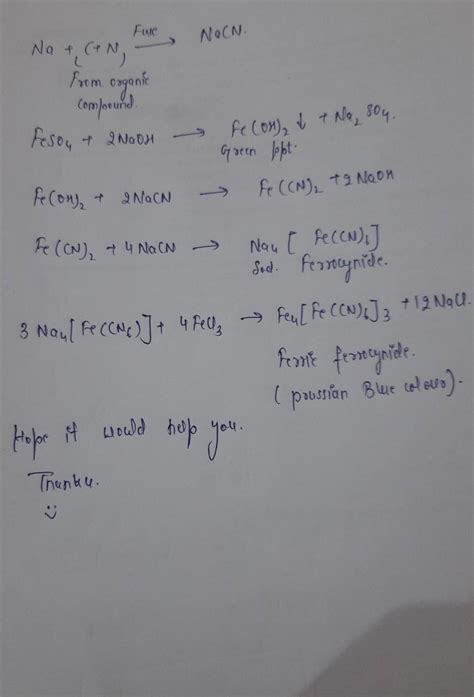 Na + (C+N) Fuse → NaCN.
From organic
compound.
FeSO4 + 2NaOH → Fe(OH)2 ↓ + Na2SO4.
Green ppt.
Fe(OH)2 + 2NaCN → Fe(CN)2 + 2NaOH
Fe(CN)2 + 4NaCN → Na4[Fe(CN)6]
Sod. Ferrocynide.
3Na4[Fe(CN6)] + 4FeCl3 → Fe4[Fe(CN)6]3 + 12NaCl.
Ferric ferrocynide.
(prussian Blue colour).
Hope it would help you.
Thanku.